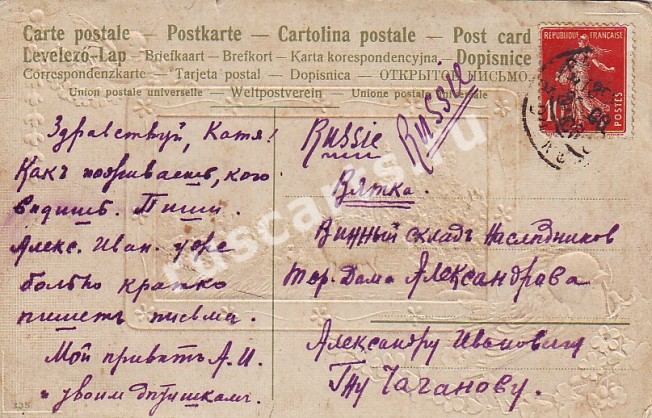 Carte postale — Postkarte — Cartolina postale — Post card
Levelező-Lap — Briefkaart — Brefkort — Karta korespondencyjna — Dopisnice
Correspondenzkarte — Tarjeta postal — Dopisnica — ОТКРЫТОЕ ПИСЬМО.
Union postale universelle — Weltpostverein — Unione postale
REPUBLIQUE FRANÇAISE
10
POSTES
Здравствуй, Катя!
Какъ поживаешь, кого
видишь. Пиши.
Алекс. Иван. уже
больно кратко
пишетъ письма.
Мой приветъ А.И.
и твоим дѣтишкамъ.
Russie
Russie
Вятка.
Винный складъ Наслѣдников
Тор. Дома Александрова
Александру Ивановичу
Гну Чаганову.
ruscards.ru